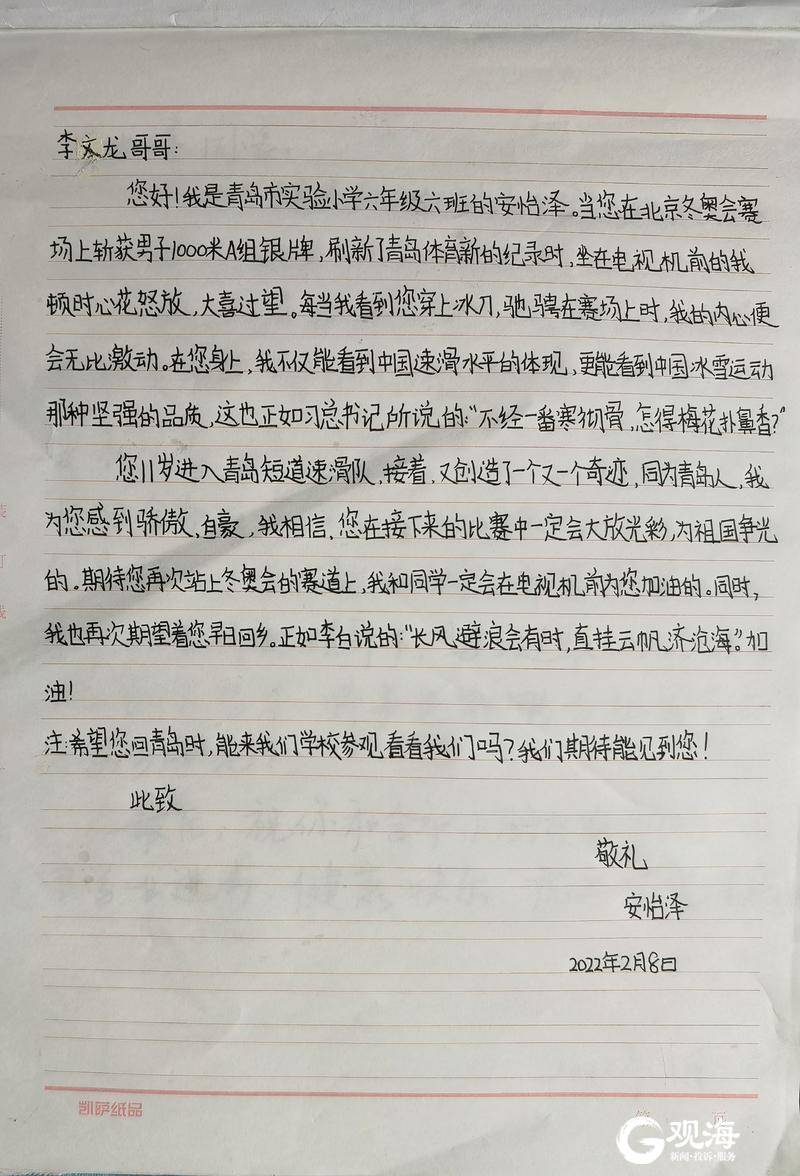 李文龙哥哥:
您好!我是青岛市实验小学六年级六班的安怡泽。当您在北京冬奥会赛
场上斩获男子1000米A组银牌,刷新了青岛体育新的纪录时,坐在电视机前的我
顿时心花怒放,大喜过望。每当我看到您穿上冰刀,驰骋在赛场上时,我的内心便
会无比激动。在您身上,我不仅能看到中国速滑水平的体现,更能看到中国冰雪运动
那种坚强的品质,这也正如习总书记所说的:“不经一番寒彻骨,怎得梅花扑鼻香?”
您11岁进入青岛短道速滑队,接着,又创造了一个又一个奇迹,同为青岛人,我
为您感到骄傲、自豪,我相信、您在接下来的比赛中一定会大放光彩,为祖国争光
的。期待您再次站上冬奥会的赛道上,我和同学一定会在电视机前为您加油的。同时,
我也再次期望着您早日回乡。正如李白说的:“长风避浪会有时,直挂云帆济沧海”。加
油!
注:希望您回青岛时,能来我们学校参观,看看我们吗?我们期待能见到您!
此致
敬礼
安怡泽
2022年2月8日
凯萨纸品
第 页
G 观海
新闻·投诉·服务